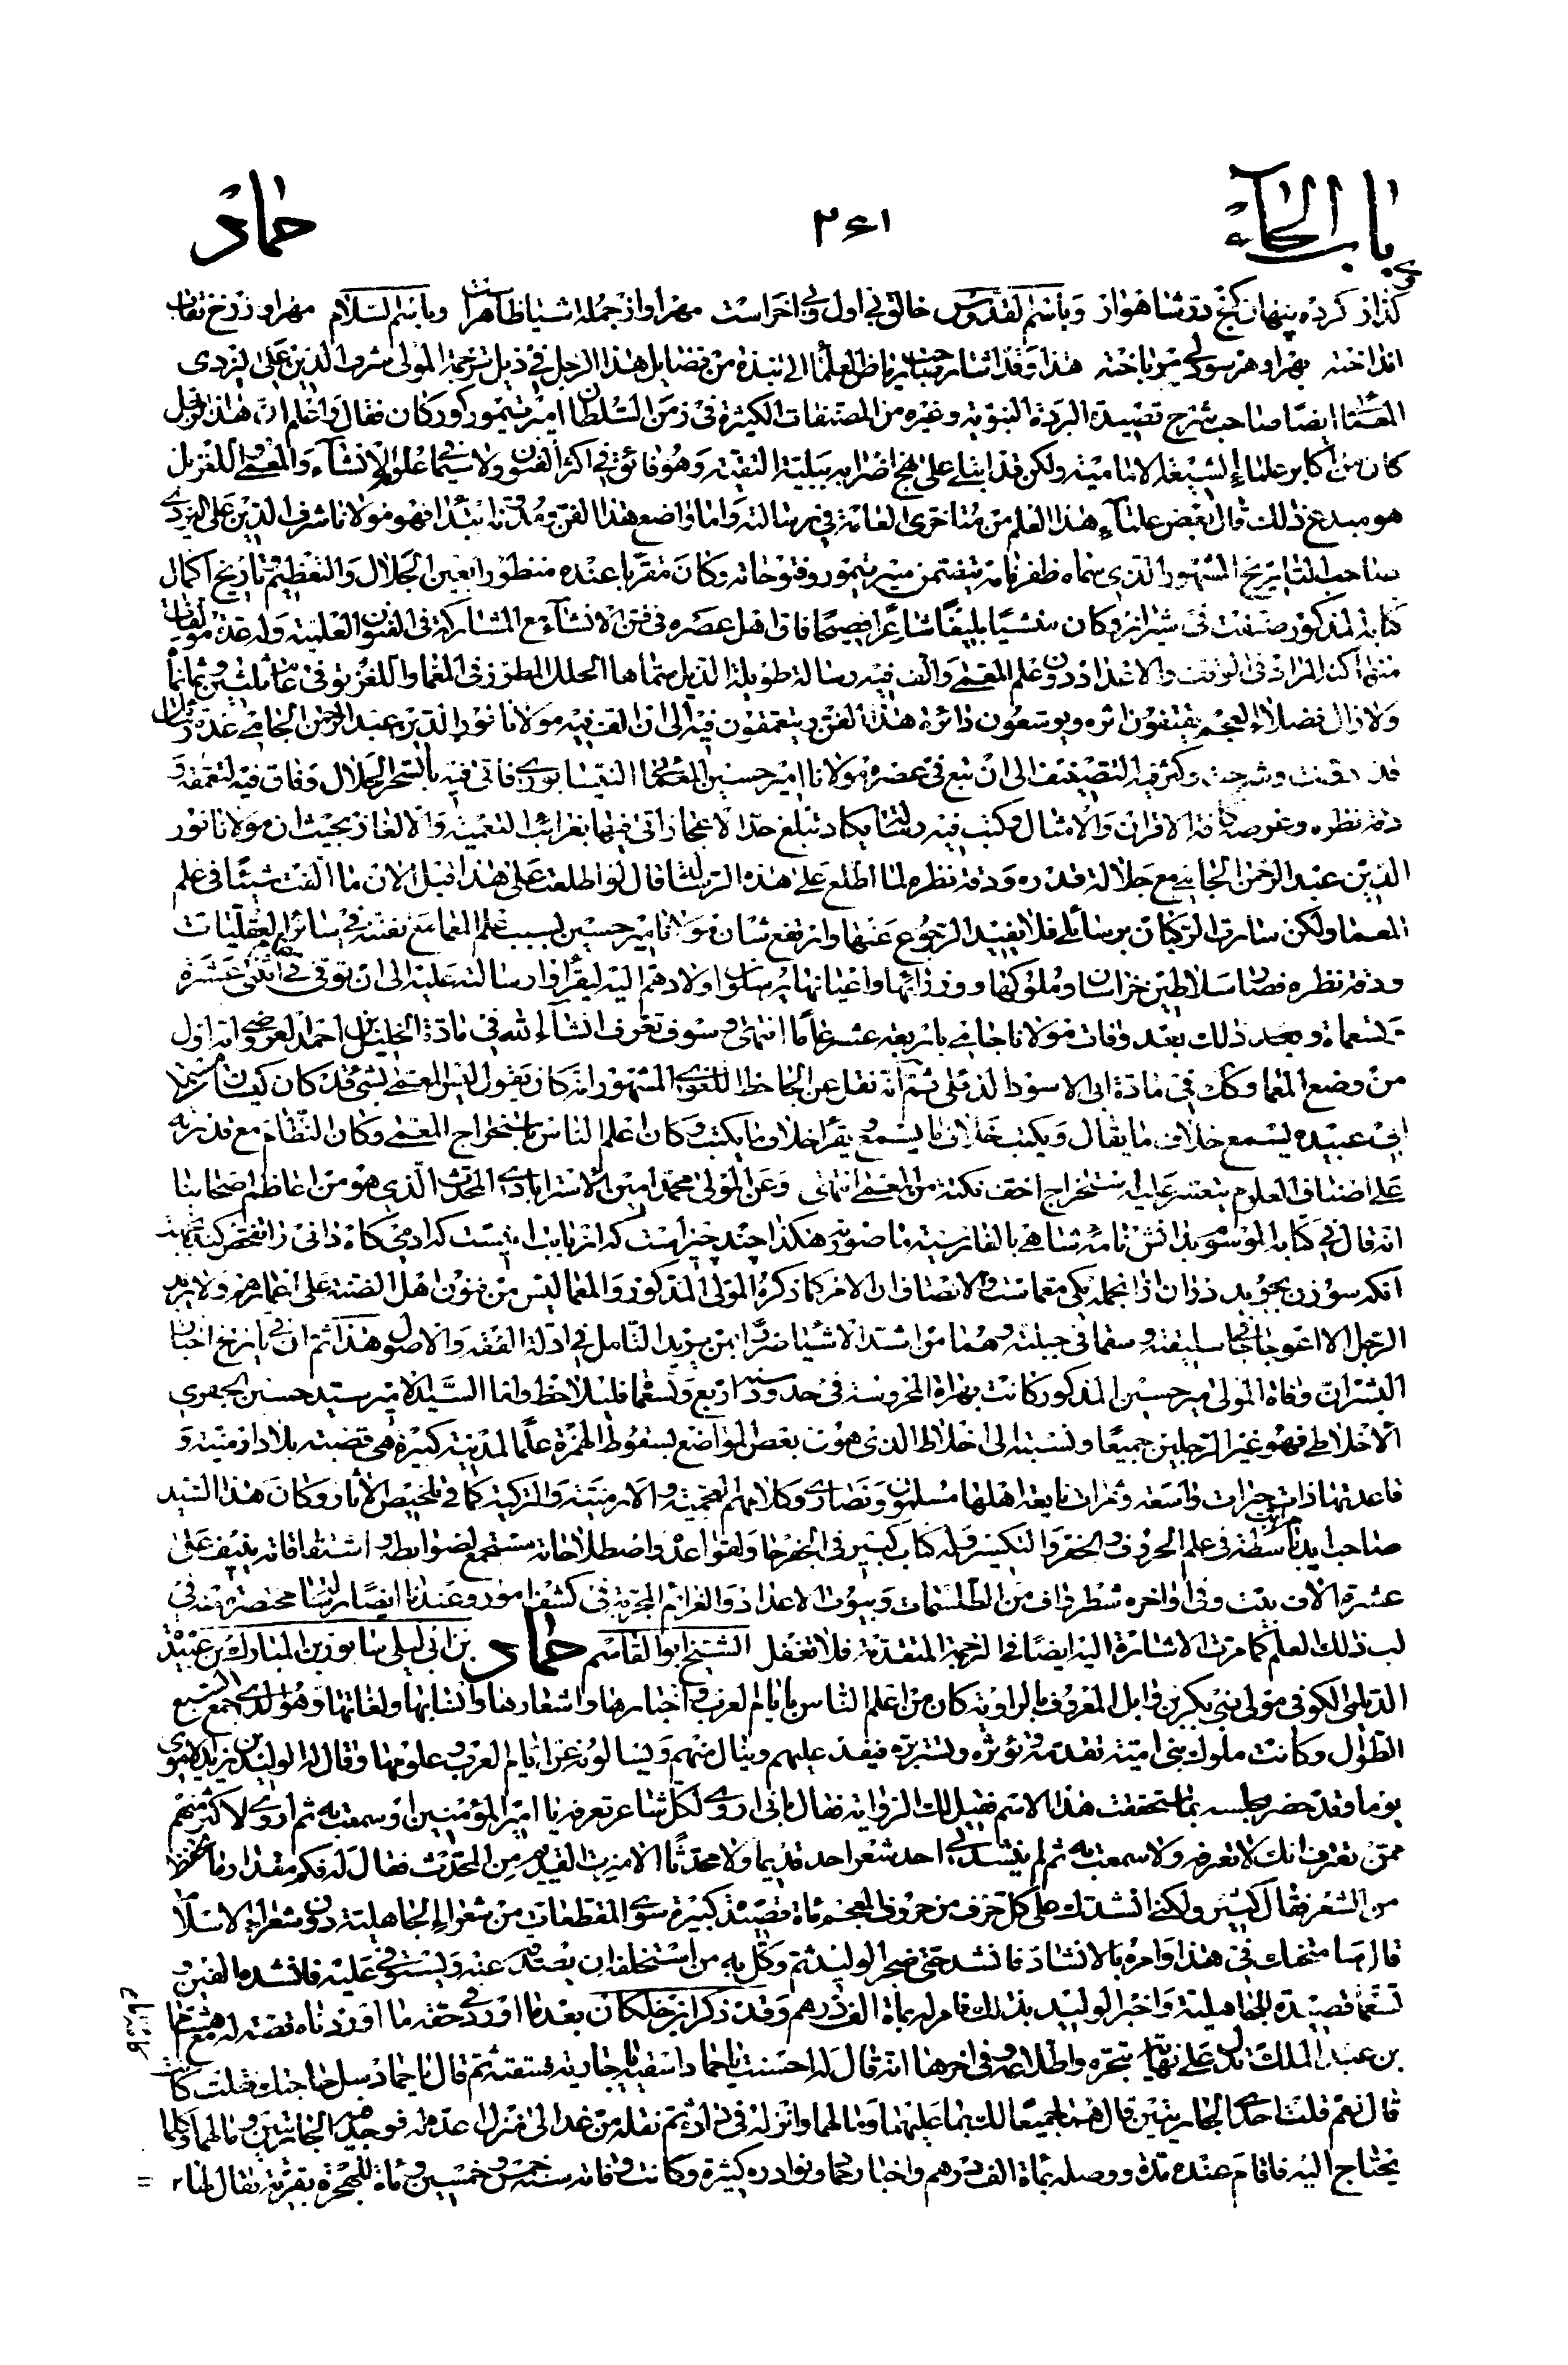 باب الحاء ٢٤١ حماد
گذار کرده پنهان گنج در شاهوار وباسم القدوس خالق بی اول وبی اخر است مهر او از جمله اشیا ظاهر است وباسم السلام مهر او زرخ نقاب
انداخته بهر او هر سوئی سر باخته هذا وقد اشار صاحب رياض العلما الى نبذة من فضايل هذا الرجل في ذيل ترجمة المولى شرف الدين على اليزدى
المعمّائى ايضا صاحب شرح قصيدة البردة النبوية وغيره من المصنفات الكثيرة في زمن السلطان امير تيمور كوركان فقال واعلم ان هذا الرجل
كان من اكابر علماء الشيعة الامامية ولكن قد ابتلى على نهج اضرابه ببلية التقية وهو فائق في اكثر الفنون ولا سيما في علوم الانشاء والمعمى واللغز بل
هو مبدع ذلك قال بعض علماء هذا العلم من متاخرى العامة في رسالته واما واضع هذا الفن ومدونه ابتداء فهو مولانا شرف الدين على اليزدى
صاحب التاريخ المشهور الذى سماه ظفر نامه يتضمن سير تيمور وفتوحاته وكان مقربا عنده منظورا بعين الجلال والتعظيم تاريخ اكمال
كتابه المذكور صنفت في شيراز وكان منشيا بليغا شاعرا فصيحا فاق اهل عصره في فن الانشاء مع المشاركة في الفنون العلمية وله عدة مؤلفات
منها كنه المراد في الوفق والاعداد ودون علم المعمى والف فيه رسالة طويلة الذيل سماها الحلل المطرز في المعما واللغز توفى عام ثلثين وثمانمأة
ولا زال فضلاء العجم يقتفون اثره ويوسعون دائرة هذا الفن ويتعمقون فيه الى ان الف فيه مولانا نور الدين عبد الرحمن الجامى عدة رسائل
قد دونت وشرحت وكثر فيه التصنيف الى ان نبع في عصره مولانا امير حسين المعمائى النيسابورى فاتى فيه بالسحر الحلال وفاق فيه لتعمقه و
دقة نظره وغوصه كافة الاقران والامثال وكتب فيه رسالة يكاد تبلغ حد الاعجاز اتى فيها بغرائب التعمية والالغاز بحيث ان مولانا نور
الدين عبد الرحمن الجامى مع جلالة قدره ودقة نظره لما اطلع على هذه الرسالة قال لو اطلعت على هذا قبل الان ما الفت شيئا في علم
المعما ولكن سارت الركبان برسائلى فلا يفيد الرجوع عنها وارتفع شان مولانا مير حسين بسبب علم المعما مع تفننه في سائر العلوم العقليات
ودقة نظره فصار سلاطين خراسان وملوكها ووزرائها واعيانها يرسلون اولادهم اليه ليقرأوا رسالته عليه الى ان توفى في اثنى عشرة
تسعماة وبعد ذلك بعد وفات مولانا جامى باربعة عشر عاما انتهى وسوف تعرف انشاء الله في مادة الخليل بن احمد العروضى انه اول
من وضع المعما وكذلك في مادة ابى الاسود الدئلى ثم انه نقل عن الجاحظ اللغوى المشهور انه كان يقول ليس المعمى بشى قد كان كيسان مستملا
ابى عبيدة يسمع خلاف ما يقال ويكتب خلاف ما يسمع ويقرأ خلاف ما يكتب وكان اعلم الناس باستخراج المعمى وكان النظام مع قدرته
على اصناف العلوم يتعسر عليه استخراج اخف نكتة من المعمى انتهى وعن المولى محمد امين الاسترابادى المحدث الذى هو من اعاظم اصحابنا
انه قال في كتابه الموسوم بدانش نامه شاهى بالفارسية ما صورته هكذا چند چيز است كه ارباب است كه ادمى گاه ذاتى را تفحص كند
آنكه سوزن بجويد دران از انجمله يكى معماست والانصاف ان الامر كما ذكره المولى المذكور والمعما ليس من فنون اهل الفتنة على اعمارهم ولا يزيد
الرجل الا اعوجاجا في سليقته وسقما في جبلته وهما من اشد الاشيا ضررا بمن يريد التامل في ادلة الفقه والاصول هذا ثم ان في تاريخ اخبار
البشر ان وفاة المولى مير حسين المذكور كانت بهراة المحروسة في حدود سنة اربع وتسعمأة فليلاحظ واما السيد الامير سيد حسين الجعفرى
الاخلاطى فهو غير الرجلين جميعا ونسبته الى اخلاط الذى هو في بعض المواضع بسقوط الهمزة علما لمدينة كبيرة هى قصبة بلاد ارمنية و
قاعدتها ذات خيرات واسعة وثمرات يانعة اهلها مسلمون ونصارى وكلامهم العجمية والارمنية والتركية كما في تلخيص الاثار وكان هذا السيد
صاحب ايد باسطة في علم الحروف والجفر والتكسير وله كتاب كبير في الجفر جامع لقواعده واصطلاحاته مستجمع لضوابطه واشتقاقاته ينيف على
عشرة الاف بيت وفي اواخره شطر واف من الطلسمات وبيوت الاعداد والعزائم المجربة في كشف امور وعندنا ايضا رسالة مختصرة منه في
لب ذلك العلم كما مرت الاشارة اليه ايضا في الترجمة المتقدمة فلا تغفل الشيخ ابو القاسم حماد بن ابى ليلى سابور بن المبارك بن عبيد
الديلمى الكوفى مولى بنى بكر بن وائل المعروف بالراوية كان من اعلم الناس بايام العرب واخبارها واشعارها وانسابها ولغاتها وهو الذى جمع السبع
الطوال وكانت ملوك بنى امية تقدمه وتؤثره وتستزيره فيفد عليهم وينال منهم ويسالونه عن ايام العرب وعلومها وقال له الوليد بن يزيد الاموى
يوما وقد حضر مجلسه بما استحققت هذا الاسم فقيل لك الراوية فقال بانى اروى لكل شاعر تعرفه يا امير المؤمنين او سمعت به ثم اروى لاكثر منهم
ممن تعترف انك لا تعرفه ولا سمعت به ثم لم ينشدنى احد شعر احد قديما ولا محدثا الا ميزت القديم من المحدث فقال له فكم مقدار ما تحفظ
من الشعر فقال كثير ولكنى انشدك على كل حرف من حروف المعجم مأة قصيدة كبيرة سوى المقطعات من شعراء الجاهلية دون شعراء الاسلام
قال سامتحنك في هذا وامره بالانشاد فانشد حتى ضجر الوليد ثم وكل به من استحلفه ان يصدقه عنه ويستوفى عليه فانشده الفين و
تسعمأة قصيدة للجاهلية واخبر الوليد بذلك فامر له بمأة الف درهم وقد ذكر ابن خلكان بعد ما اورد في حقه ما اوردناه قصة له مع هشام
بن عبد الملك تدل على نهاية تبحره واطلاعه وفي اخرها انه قال له احسنت يا حماد اسقيه يا جارية فسقته ثم قال يا حماد سل حاجتك فقلت كائنة
قال نعم قلت احدى الجاريتين قال هما جميعا لك بما عليهما وما لهما وانزله في داره ثم نقله من غد الى منزل اعده له فوجد فيه الجاريتين وما لهما وكلما
يحتاج اليه فاقام عنده مدة ووصله بمأة الف درهم واخبار حماد ونوادره كثيرة وكانت وفاته سنة خمس وخمسين ومأة للهجرة بقرية يقال لها